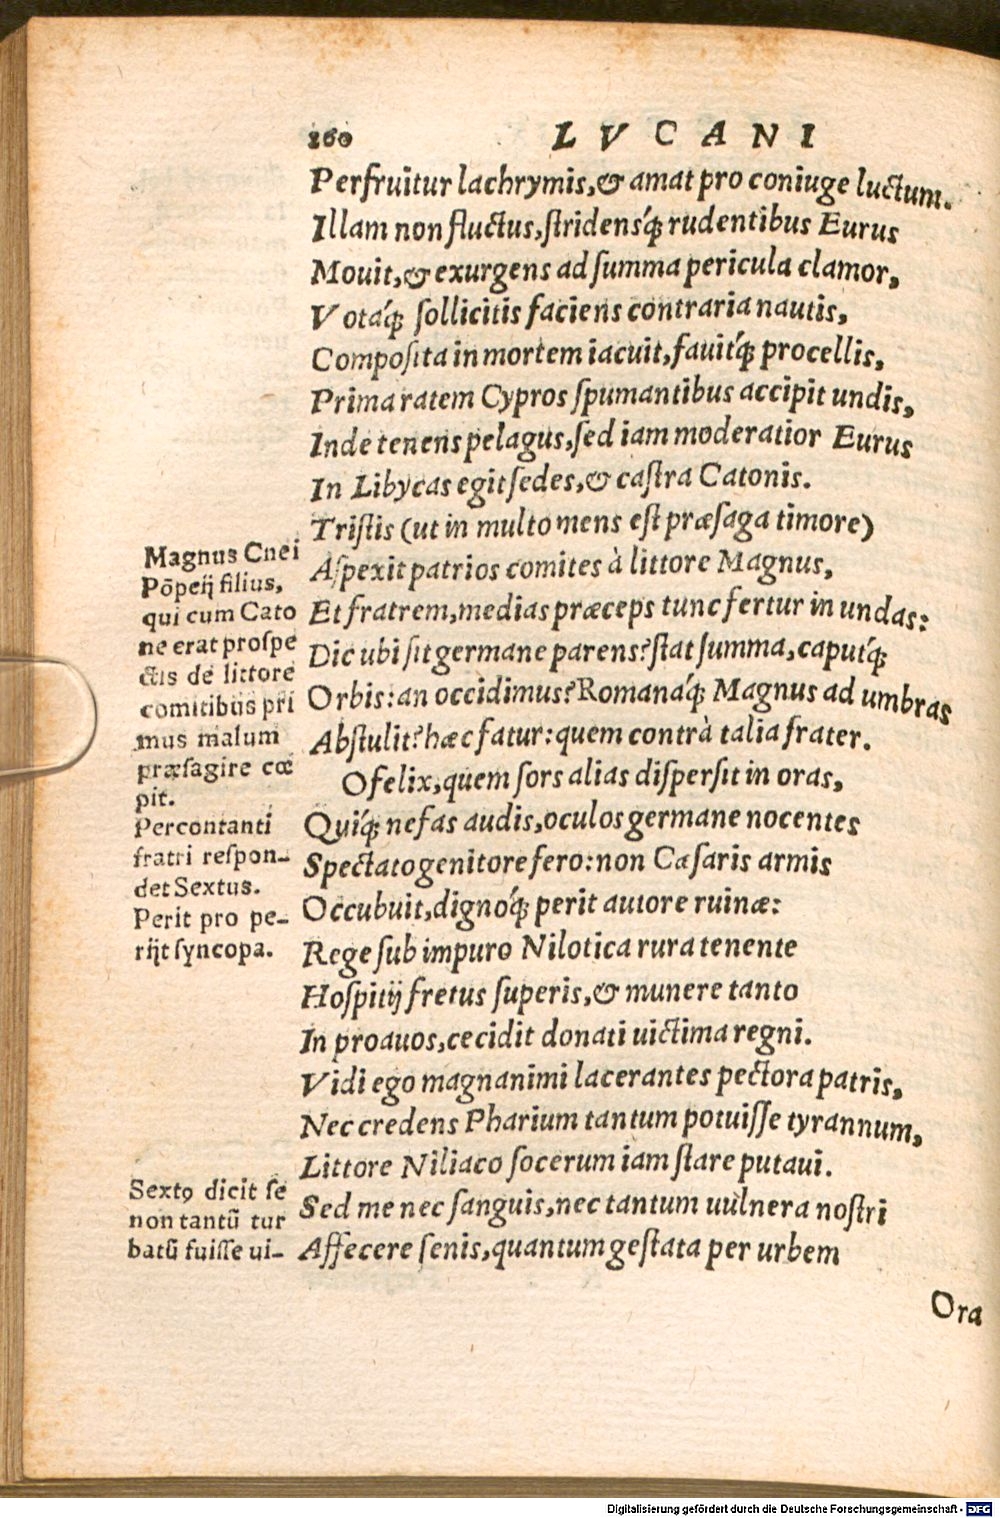 260 LVCANI
Perfruitur lachrymis,& amat pro coniuge luctum.
Illam non fluctus,ſtridensq́; rudentibus Eurus
Mouit,& exurgens ad ſumma pericula clamor,
Votaq́; ſollicitis faciens contraria nautis,
Compoſita in mortem iacuit,fauitq́; procellis,
Prima ratem Cypros ſpumantibus accipit undis,
Inde tenens pelagus,ſed iam moderatior Eurus
In Libycas egit ſedes,& caſtra Catonis.
Triſtis (ut in multo mens eſt præſaga timore)
Aſpexit patrios comites à littore Magnus,
Et fratrem,medias præceps tunc fertur in undas:
Dic ubi ſit germane parens?ſtat ſumma,caputq́;
Orbis:an occidimus?Romanaq́; Magnus ad umbras
Abſtulit?hæc fatur:quem contrà talia frater.
O felix,quem ſors alias diſperſit in oras,
Quiq́; nefas audis,oculos germane nocentes
Spectato genitore fero:non Cæſaris armis
Occubuit,dignoq́; perit autore ruinæ:
Rege ſub impuro Nilotica rura tenente
Hoſpitij fretus ſuperis,& munere tanto
In proauos,cecidit donati uictima regni.
Vidi ego magnanimi lacerantes pectora patris,
Nec credens Pharium tantum potuiſſe tyrannum,
Littore Niliaco ſocerum iam ſtare putaui.
Sed me nec ſanguis,nec tantum uulnera noſtri
Affecere ſenis,quantum geſtata per urbem
Ora
Magnus Cnei
Pōpeij filius,
qui cum Cato
ne erat proſpe
ctis de littore
comitibus pri
mus malum
præſagire cœ
pit.
Percontanti
fratri reſpon-
det Sextus.
Perit pro pe-
rijt ſyncopa.
Sexto dicit ſe
non tantū tur
batū fuiſſe ui-
Digitalisierung gefördert durch die Deutsche Forschungsgemeinschaft - DFG